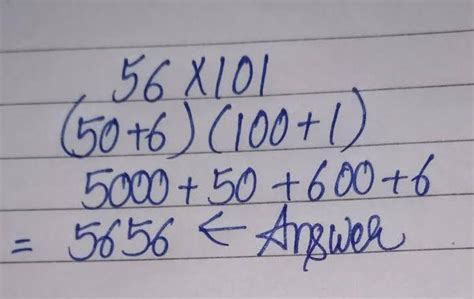 56 X 101
(50+6) (100+1)
5000 + 50 + 600 + 6
= 5656 ← Answer